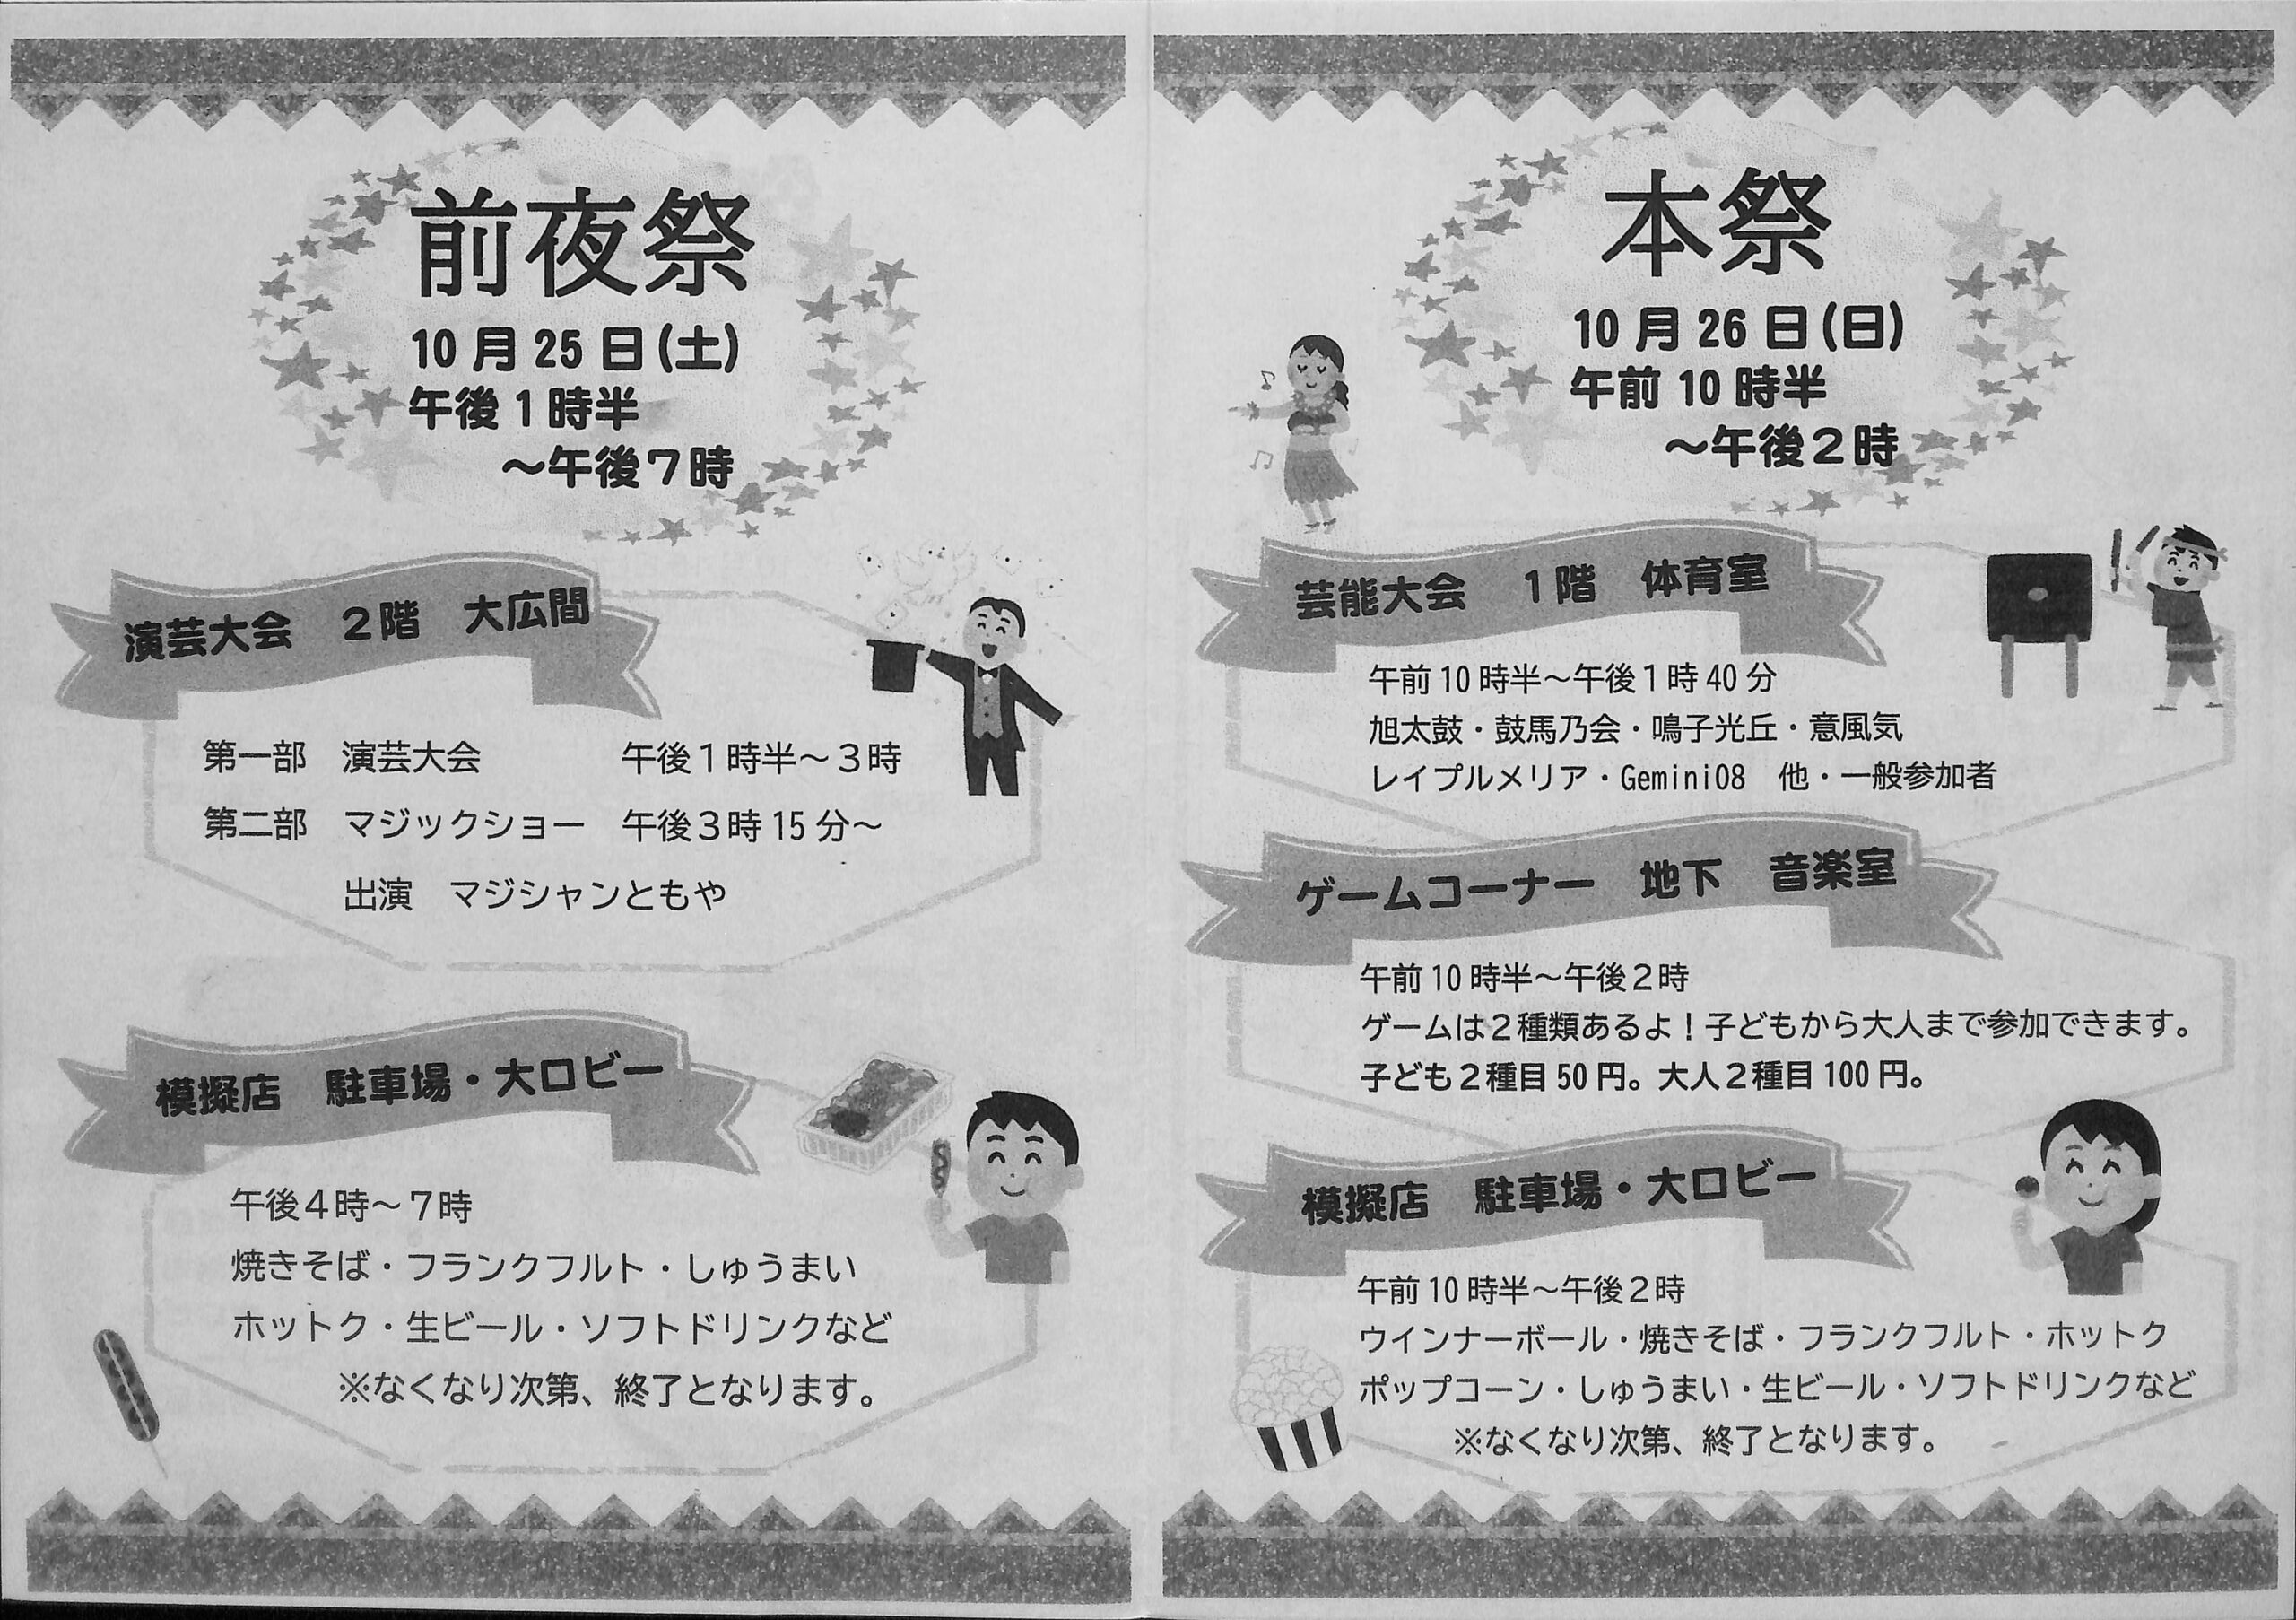 前夜祭
10月25日(土)
午後1時半
～午後7時
演芸大会　2階　大広間
第一部　演芸大会　　　　午後1時半～3時
第二部　マジックショー　午後3時15分～
出演　マジシャンともや
模擬店　駐車場・大ロビー
午後4時～7時
焼きそば・フランクフルト・しゅうまい
ホットク・生ビール・ソフトドリンクなど
※なくなり次第、終了となります。
本祭
10月26日(日)
午前10時半
～午後2時
芸能大会　1階　体育室
午前10時半～午後1時40分
旭太鼓・鼓馬乃会・鳴子光丘・意風気
レイプルメリア・Gemini08　他・一般参加者
ゲームコーナー　地下　音楽室
午前10時半～午後2時
ゲームは2種類あるよ！子どもから大人まで参加できます。
子ども2種目50円。大人2種目100円。
模擬店　駐車場・大ロビー
午前10時半～午後2時
ウインナーボール・焼きそば・フランクフルト・ホットク
ポップコーン・しゅうまい・生ビール・ソフトドリンクなど
※なくなり次第、終了となります。